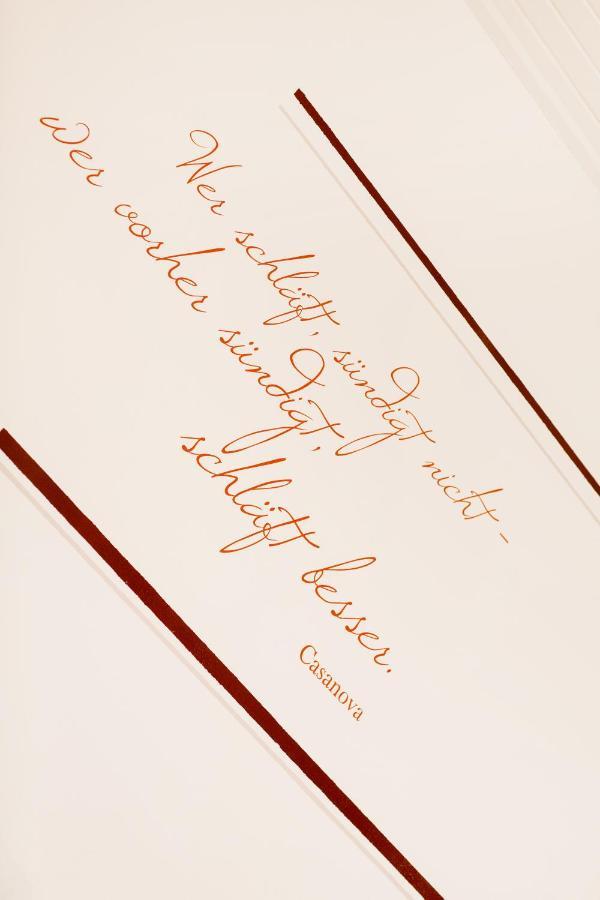 Wer schläft, sündigt nicht -
wer vorher sündigt,
schläft besser.
Casanova